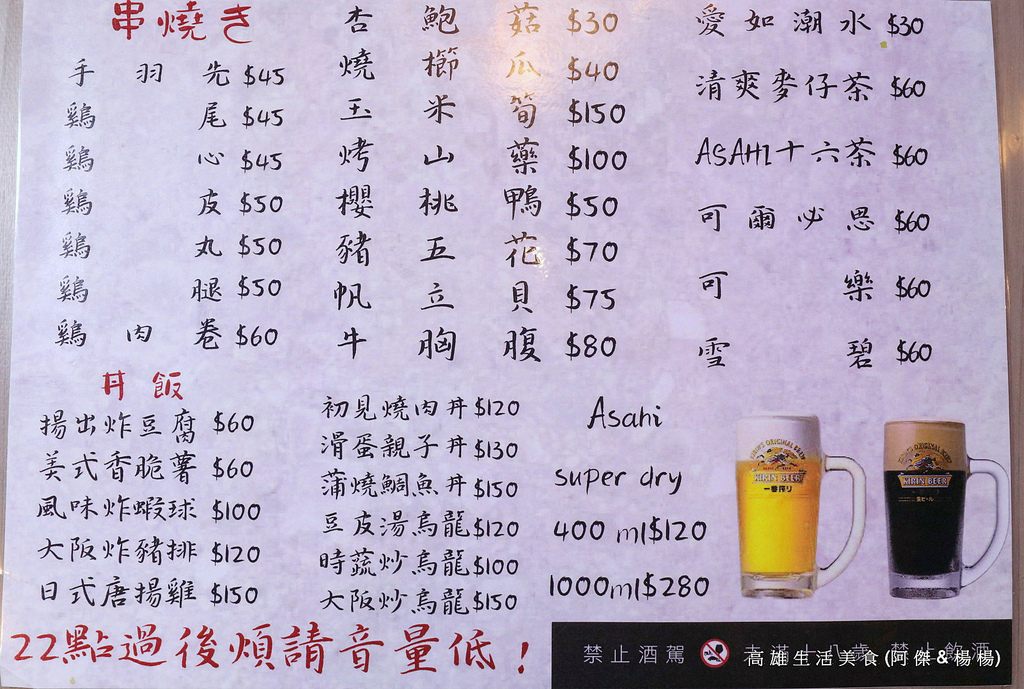 串燒き
手羽先 $45
鷄尾 $45
鷄心 $45
鷄皮 $50
鷄丸 $50
鷄腿 $50
鷄肉卷 $60
杏鮑菇 $30
燒櫛瓜 $40
玉米筍 $150
烤山藥 $100
櫻桃鴨 $50
豬五花 $70
帆立貝 $75
牛胸腹 $80
愛如潮水 $30
清爽麥仔茶 $60
ASAHI十六茶 $60
可爾必思 $60
可樂 $60
雪碧 $60
丼飯
揚出炸豆腐 $60
美式香脆薯 $60
風味炸蝦球 $100
大阪炸豬排 $120
日式唐揚雞 $150
初見燒肉丼 $120
滑蛋親子丼 $130
蒲燒鯛魚丼 $150
豆皮湯烏龍 $120
時蔬炒烏龍 $100
大阪炒烏龍 $150
Asahi
super dry
400 ml $120
1000ml $280
KIRIN BEER
一番搾り
KIRIN BEER
22點過後煩請音量低！
禁止酒駕 未滿十八歲 禁止飲酒
高雄生活美食(阿傑&楊楊)